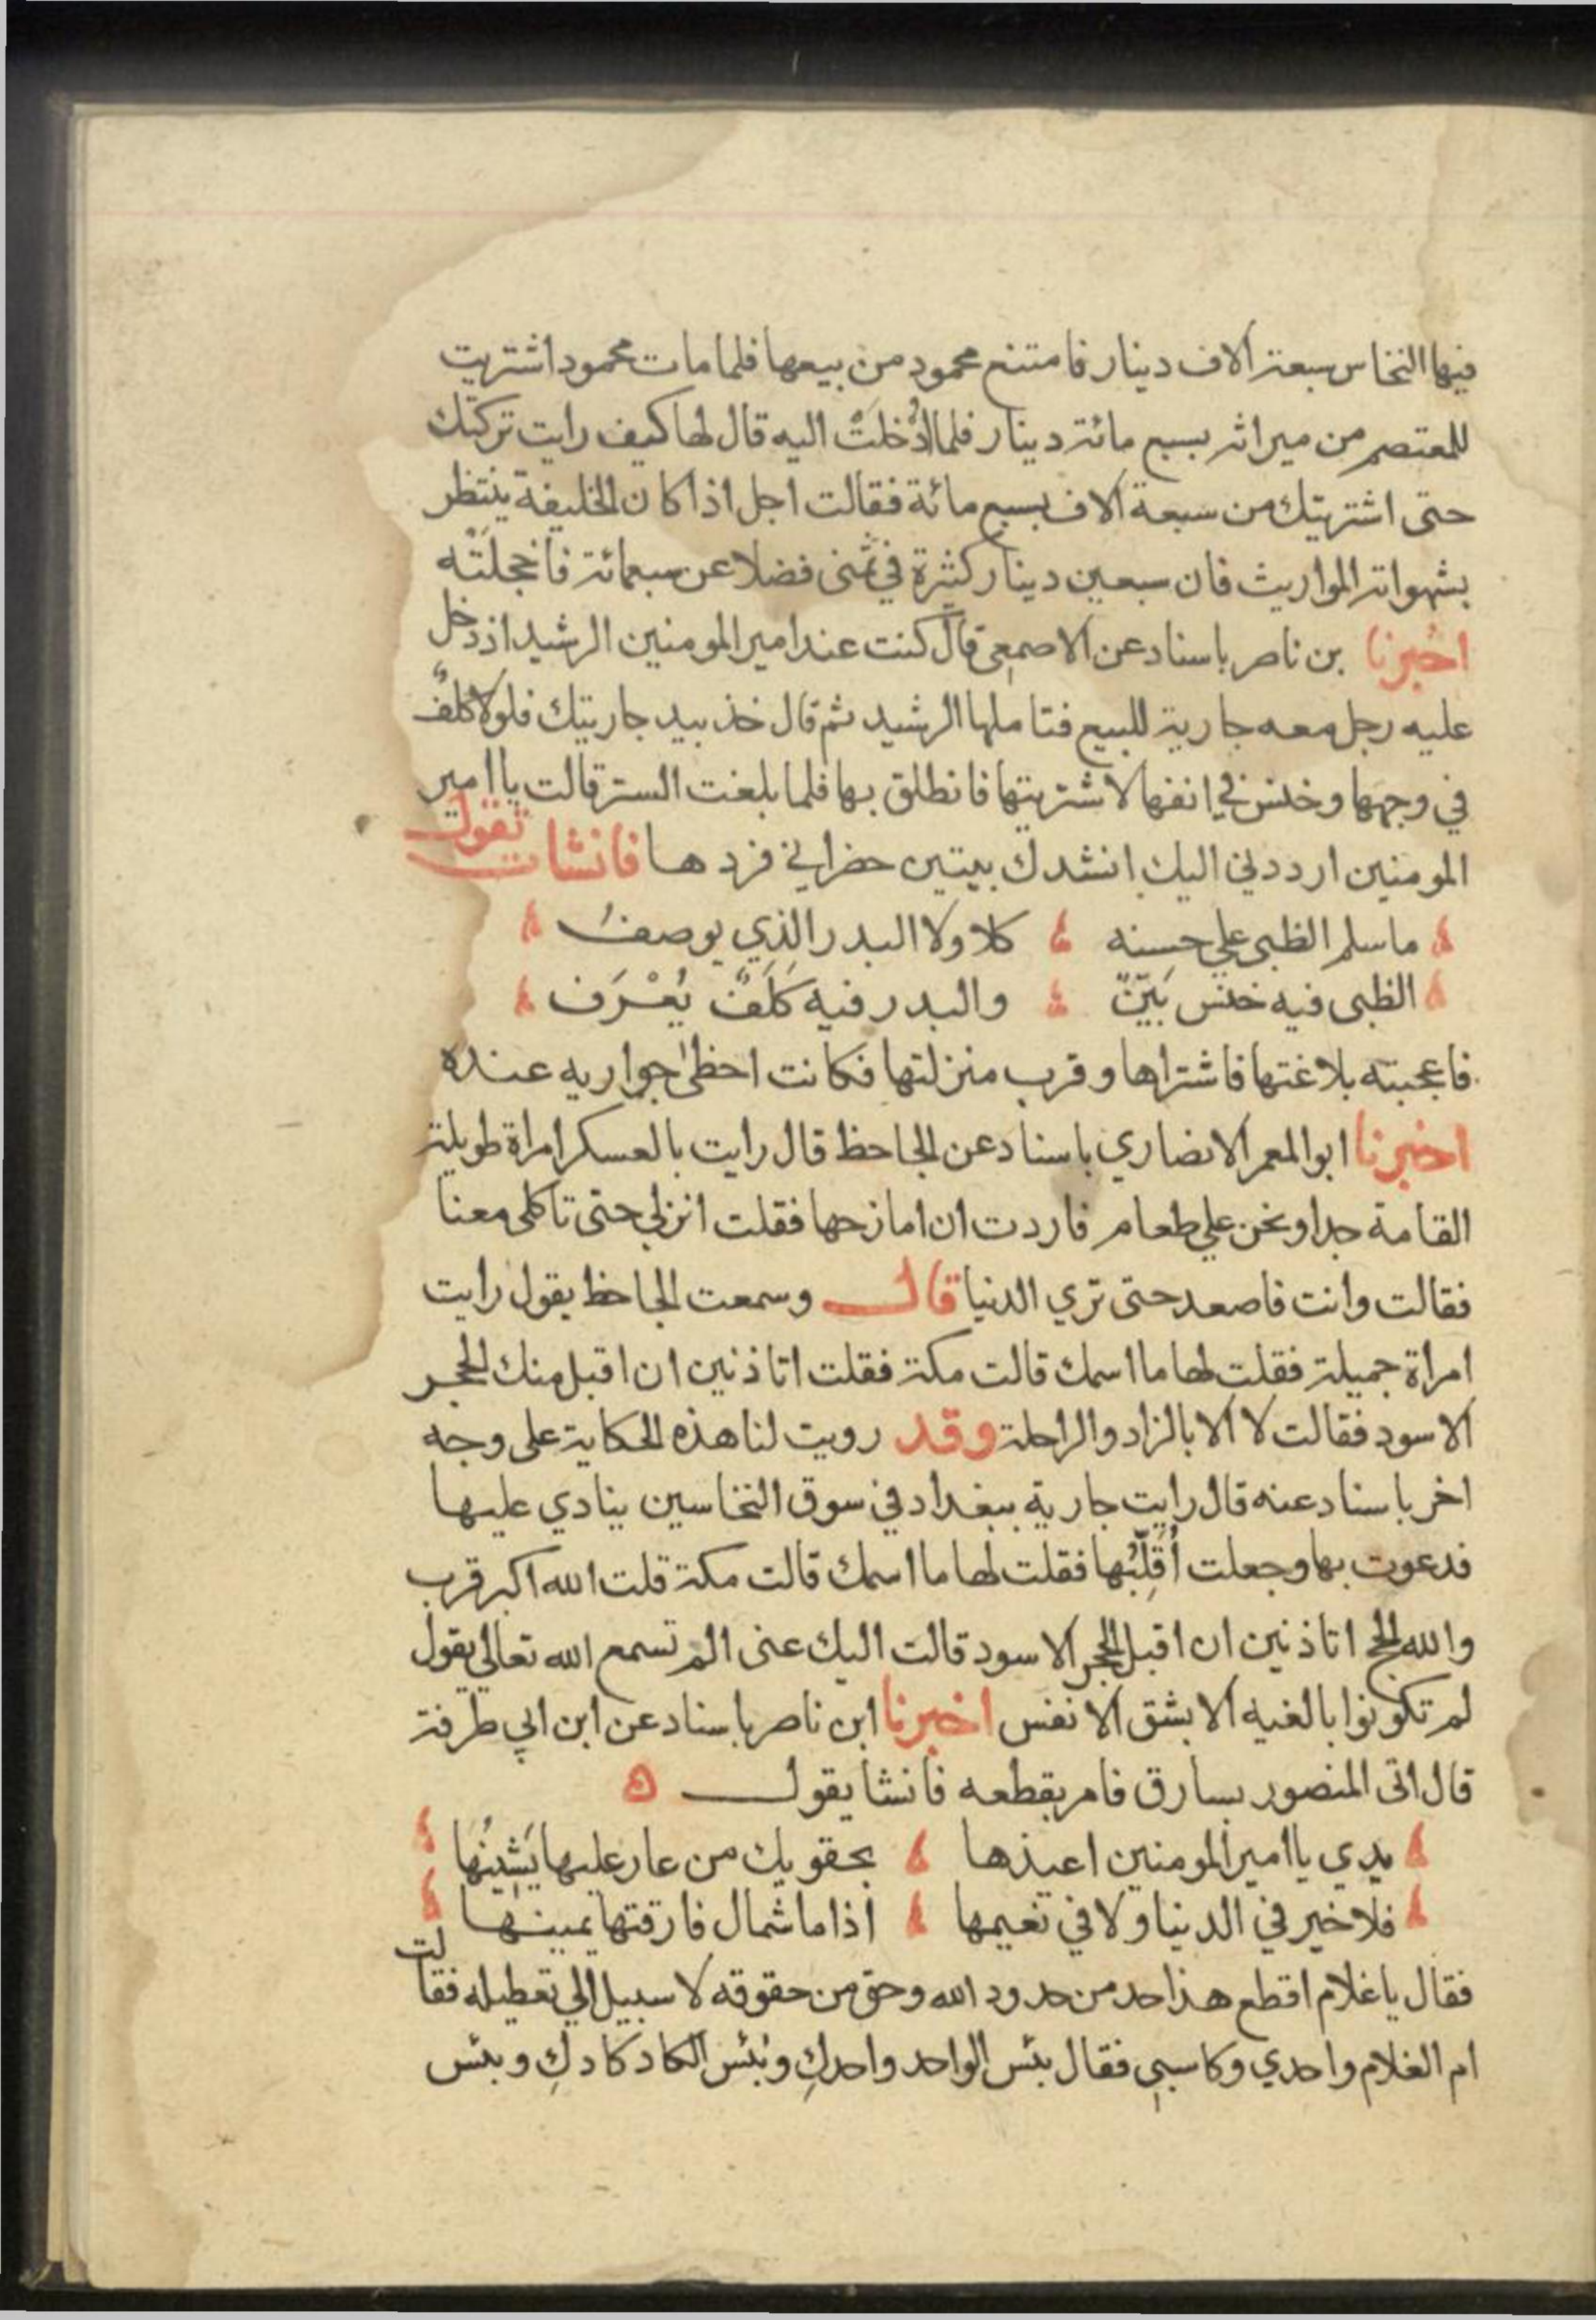 فيها النخاس سبعة الاف دينار فامتنع محمود من بيعها فلما مات محمود اشتريت
للمعتصم من ميراثه بسبع مائة دينار فلما أُدْخِلَتْ اليه قال لها كيف رايت تركتك
حتى اشتريتك من سبعة الاف بسبع مائة فقالت اجل اذا كان الخليفة ينتظر
بشهواته المواريث فان سبعين دينار كثيرة في ثمنى فضلا عن سبعمائة فاخجلَتْه
اخبرنا بن ناصر باسناد عن الاصمعى قال كنت عند امير المومنين الرشيد اذ دخل
عليه رجل معه جارية للبيع فتاملها الرشيد ثم قال خذ بيد جاريتك فلولا كلفٌ
في وجهها وخنس في انفها لاشتريتها فانطلق بها فلما بلغت الستر قالت يا امير
المومنين ارددني اليك انشدك بيتين حضراني فردها فانشات تقول
ما سلم الظبى علي حسنه كلا ولا البدر الذي يوصفُ
الظبى فيه خنس بَيّنٌ والبدر فيه كَلَفٌ يُعْرَف
فاعجبته بلاغتها فاشتراها وقرب منزلتها فكانت احظى جواريه عنده
اخبرنا ابو المعمر الانصاري باسناد عن الجاحظ قال رايت بالعسكر امراة طويلة
القامة جدا ونحن علي طعام فاردت ان امازحها فقلت انزلي حتى تاكلى معنا
فقالت وانت فاصعد حتى تري الدنيا قال وسمعت الجاحظ يقول رايت
امراة جميلة فقلت لها ما اسمك قالت مكة فقلت اتاذنين ان اقبل منك الحجر
الاسود فقالت لا الا بالزاد والراحلة وقد رويت لنا هذه الحكاية على وجه
اخر باسناد عنه قال رايت جارية ببغداد في سوق النخاسين ينادي عليها
فدعوت بها وجعلت أُقلِّبُها فقلت لها ما اسمك قالت مكة قلت الله اكبر قرب
والله الحج اتاذنين ان اقبل الحجر الاسود قالت اليك عنى الم تسمع الله تعالي يقول
لم تكونوا بالغيه الا بشق الانفس اخبرنا ابن ناصر باسناد عن ابن ابي طرفة
قال اتى المنصور بسارق فامر بقطعه فانشا يقول
يدي يا امير المومنين اعيذها بحقويك من عار عليها يَشِينُها
فلا خير في الدنيا ولا في نعيمها اذا ما شمال فارقتها يمينها
فقال يا غلام اقطع هذا حد من حدود الله وحق من حقوقه لا سبيل الي تعطيله فقالت
ام الغلام واحدي وكاسبي فقال بئس الواحد واحدكِ وبُئس الكاد كادكِ وبئس